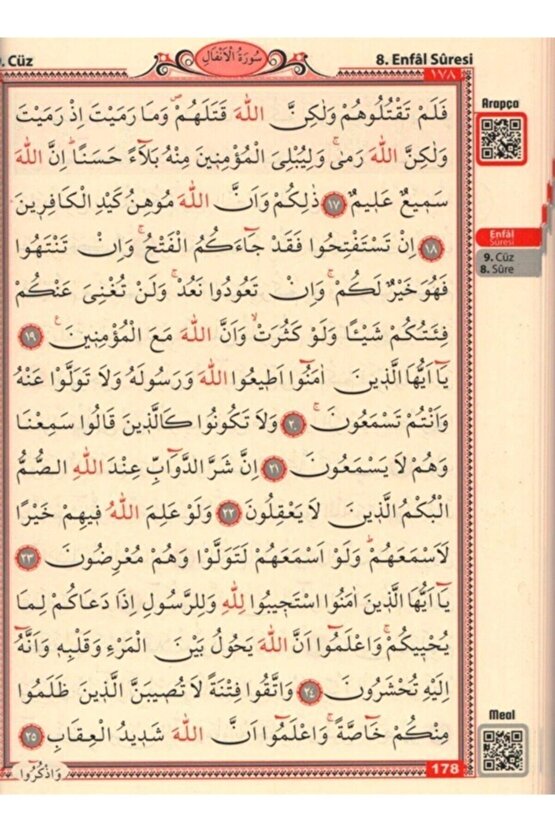 9. Cüz
سُورَةُ الْاَنْفَالِ
8. Enfâl Sûresi
١٧٨
فَلَمْ تَقْتُلُوهُمْ وَلٰكِنَّ اللّٰهَ قَتَلَهُمْ وَمَا رَمَيْتَ اِذْ رَمَيْتَ
وَلٰكِنَّ اللّٰهَ رَمٰىۚ وَلِيُبْلِيَ الْمُؤْمِنٖينَ مِنْهُ بَلَٓاءً حَسَنًاۜ اِنَّ اللّٰهَ
سَمٖيعٌ عَلٖيمٌ ﴿١٧﴾ ذٰلِكُمْ وَاَنَّ اللّٰهَ مُوهِنُ كَيْدِ الْكَافِرٖينَ
﴿١٨﴾ اِنْ تَسْتَفْتِحُوا فَقَدْ جَٓاءَكُمُ الْفَتْحُۚ وَاِنْ تَنْتَهُوا
فَهُوَ خَيْرٌ لَكُمْۚ وَاِنْ تَعُودُوا نَعُدْۚ وَلَنْ تُغْنِيَ عَنْكُمْ
فِئَتُكُمْ شَيْـًٔا وَلَوْ كَثُرَتْۙ وَاَنَّ اللّٰهَ مَعَ الْمُؤْمِنٖينَۚ ﴿١٩﴾
يَٓا اَيُّهَا الَّذٖينَ اٰمَنُٓوا اَطٖيعُوا اللّٰهَ وَرَسُولَهُ وَلَا تَوَلَّوْا عَنْهُ
وَاَنْتُمْ تَسْمَعُونَۚ ﴿٢٠﴾ وَلَا تَكُونُوا كَالَّذٖينَ قَالُوا سَمِعْنَا
وَهُمْ لَا يَسْمَعُونَ ﴿٢١﴾ اِنَّ شَرَّ الدَّوَٓابِّ عِنْدَ اللّٰهِ الصُّمُّ
الْبُكْمُ الَّذٖينَ لَا يَعْقِلُونَ ﴿٢٢﴾ وَلَوْ عَلِمَ اللّٰهُ فٖيهِمْ خَيْرًا
لَاَسْمَعَهُمْۜ وَلَوْ اَسْمَعَهُمْ لَتَوَلَّوْا وَهُمْ مُعْرِضُونَ ﴿٢٣﴾
يَٓا اَيُّهَا الَّذٖينَ اٰمَنُوا اسْتَجٖيبُوا لِلّٰهِ وَلِلرَّسُولِ اِذَا دَعَاكُمْ لِمَا
يُحْيٖيكُمْۚ وَاعْلَمُٓوا اَنَّ اللّٰهَ يَحُولُ بَيْنَ الْمَرْءِ وَقَلْبِهٖ وَاَنَّهُٓ
اِلَيْهِ تُحْشَرُونَ ﴿٢٤﴾ وَاتَّقُوا فِتْنَةً لَا تُصٖيبَنَّ الَّذٖينَ ظَلَمُوا
مِنْكُمْ خَٓاصَّةًۚ وَاعْلَمُٓوا اَنَّ اللّٰهَ شَدٖيدُ الْعِقَابِ ﴿٢٥﴾
وَاذْكُرُٓوا
178
Arapça
Enfâl
Sûresi
9. Cüz
8. Sûre
Meal